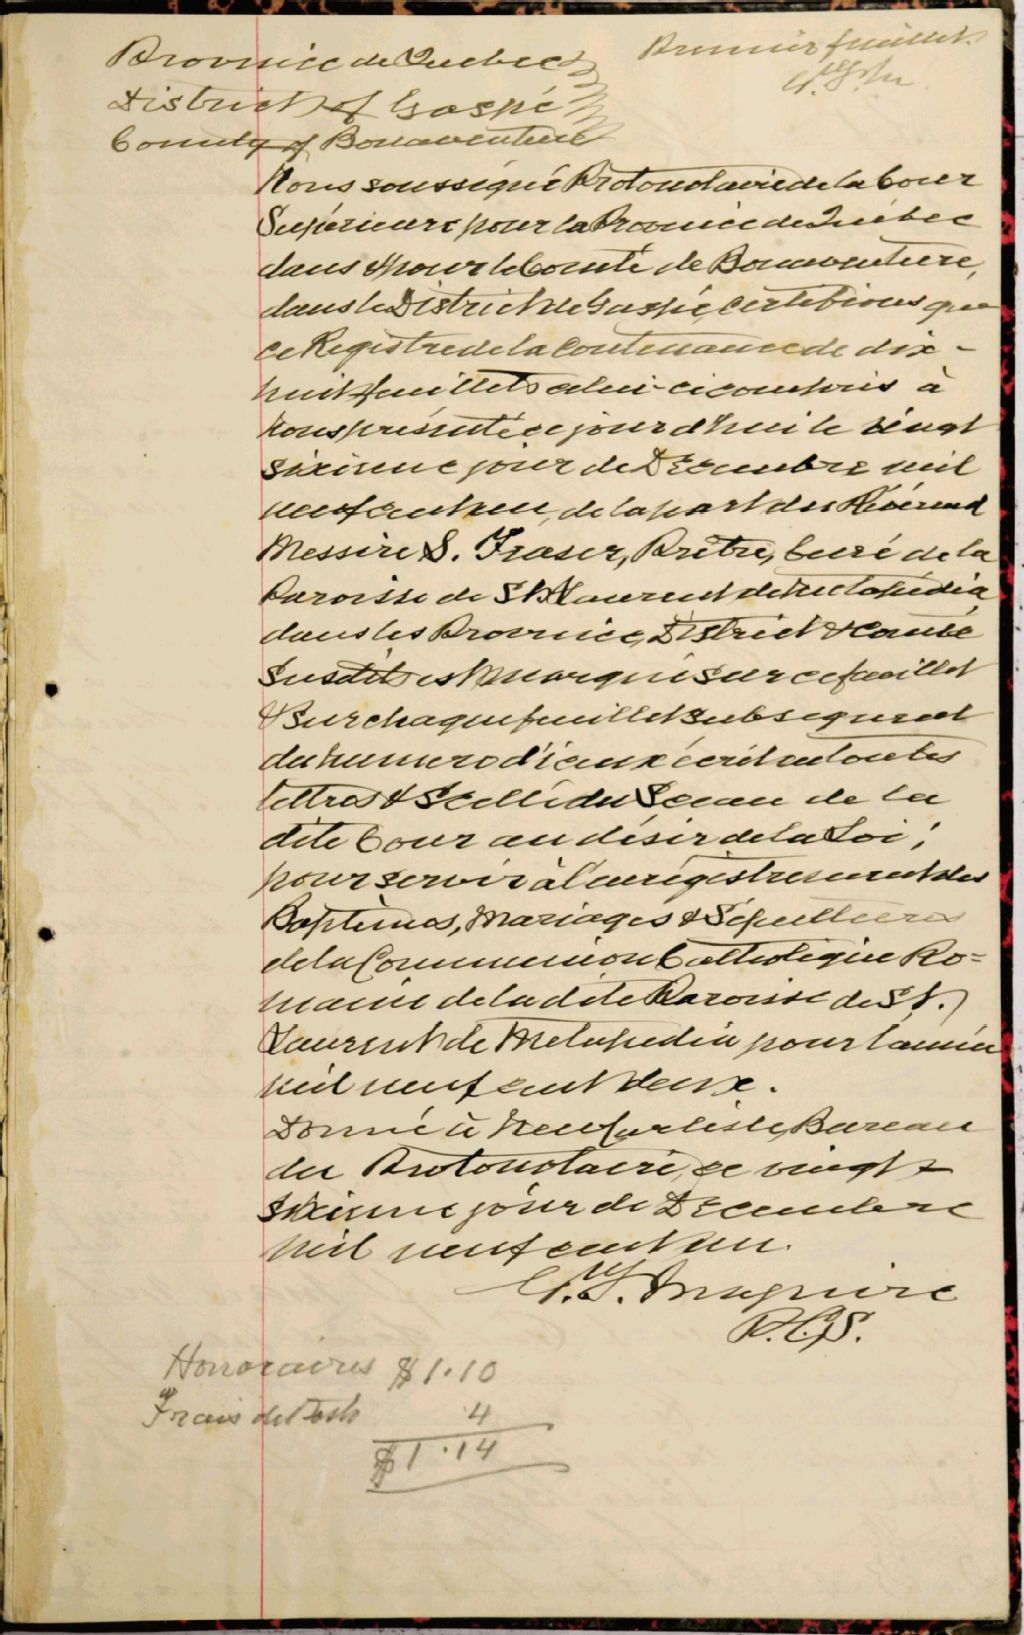 Province de Quebec
Premier feuillet
District of Gaspé
County of Bonaventure
Nous soussigné Protonotaire de la Cour
Supérieure pour la Province de Québec
dans & pour le Comté de Bonaventure,
dans le District de Gaspé, certifions que
ce Registre de la contenance de dix-
huit feuillets celui-ci compris à
nous présenté ce jourd'hui le vingt
sixieme jour de Décembre mil
neuf cent un, de la part du Révérend
Messire S. Fraser, Prêtre, Curé de la
Paroisse de St Laurent de Metapedia
dans les Province, District & Comté
Susdits est marqué sur ce feuillet
& Sur chaque feuillet subsequent
du numero d'iceux écrit en toutes
lettres & Scellé du Sceau de la
dite Cour au désir de la Loi;
pour servir à l'enrégistrement des
Baptêmes, Mariages & Sépultures
de la Communion Catholique Ro=
maine de la dite Paroisse de St.
Laurent de Metapedia pour l'année
mil neuf cent deux.
Donné à New Carlisle, Bureau
du Protonotaire, ce vingt
sixieme jour de Décembre
mil neuf cent un.
Maguire
P.C.S.
Honoraires $1.10
Frais de Poste 4
$1.14